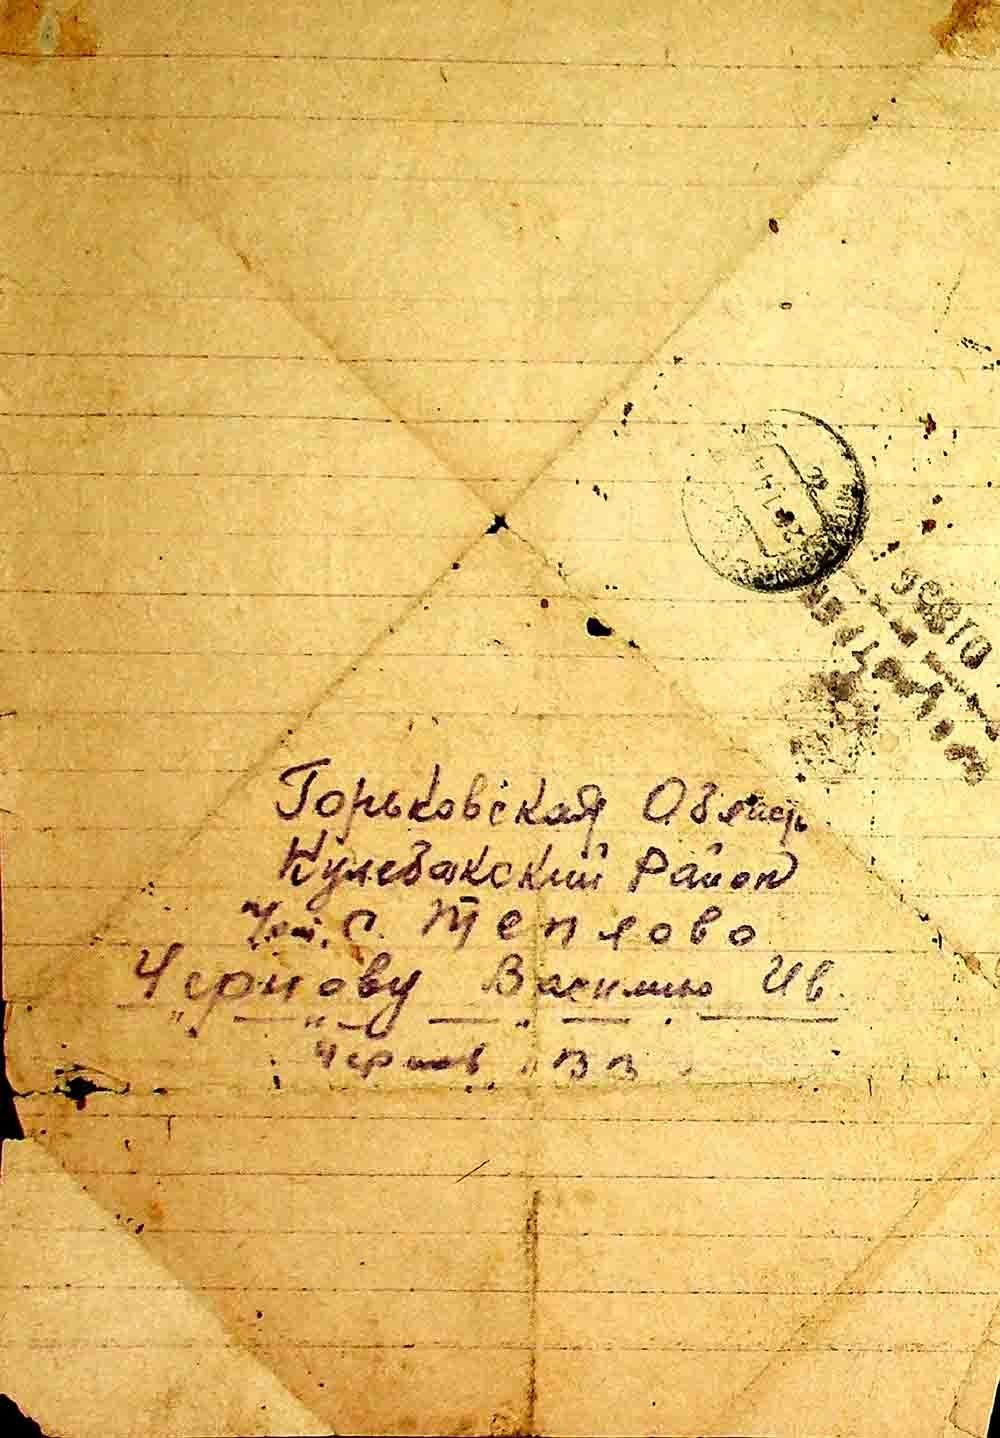 01836
Горьковская Область
Кулебакский Район
с. Теплово
Чернову Василию Ив.
Чернов В В